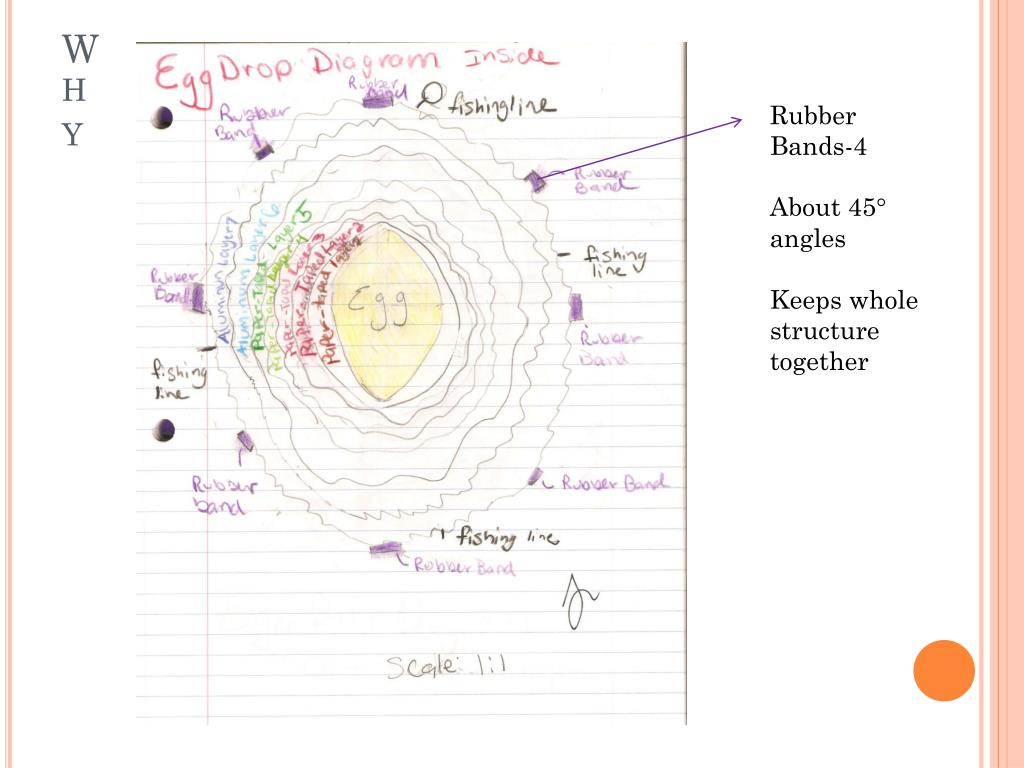 W
H
Y
Egg Drop Diagram Inside
Rubber
Band
fishing line
Rubber
Band
Rubber
Band
fishing
line
Rubber
Band
Aluminum Layer 7
Aluminum Layer 6
Paper-Taped-Layer 5
Paper-Taped Layer 4
Paper-Taped Layer 3
Paper-Taped Layer 2
Paper-taped layer
Egg
Rubber
Band
fishing
line
Rubber
band
Rubber Band
fishing line
Rubber Band
Scale: 1:1
Rubber
Bands-4
About 45°
angles
Keeps whole
structure
together